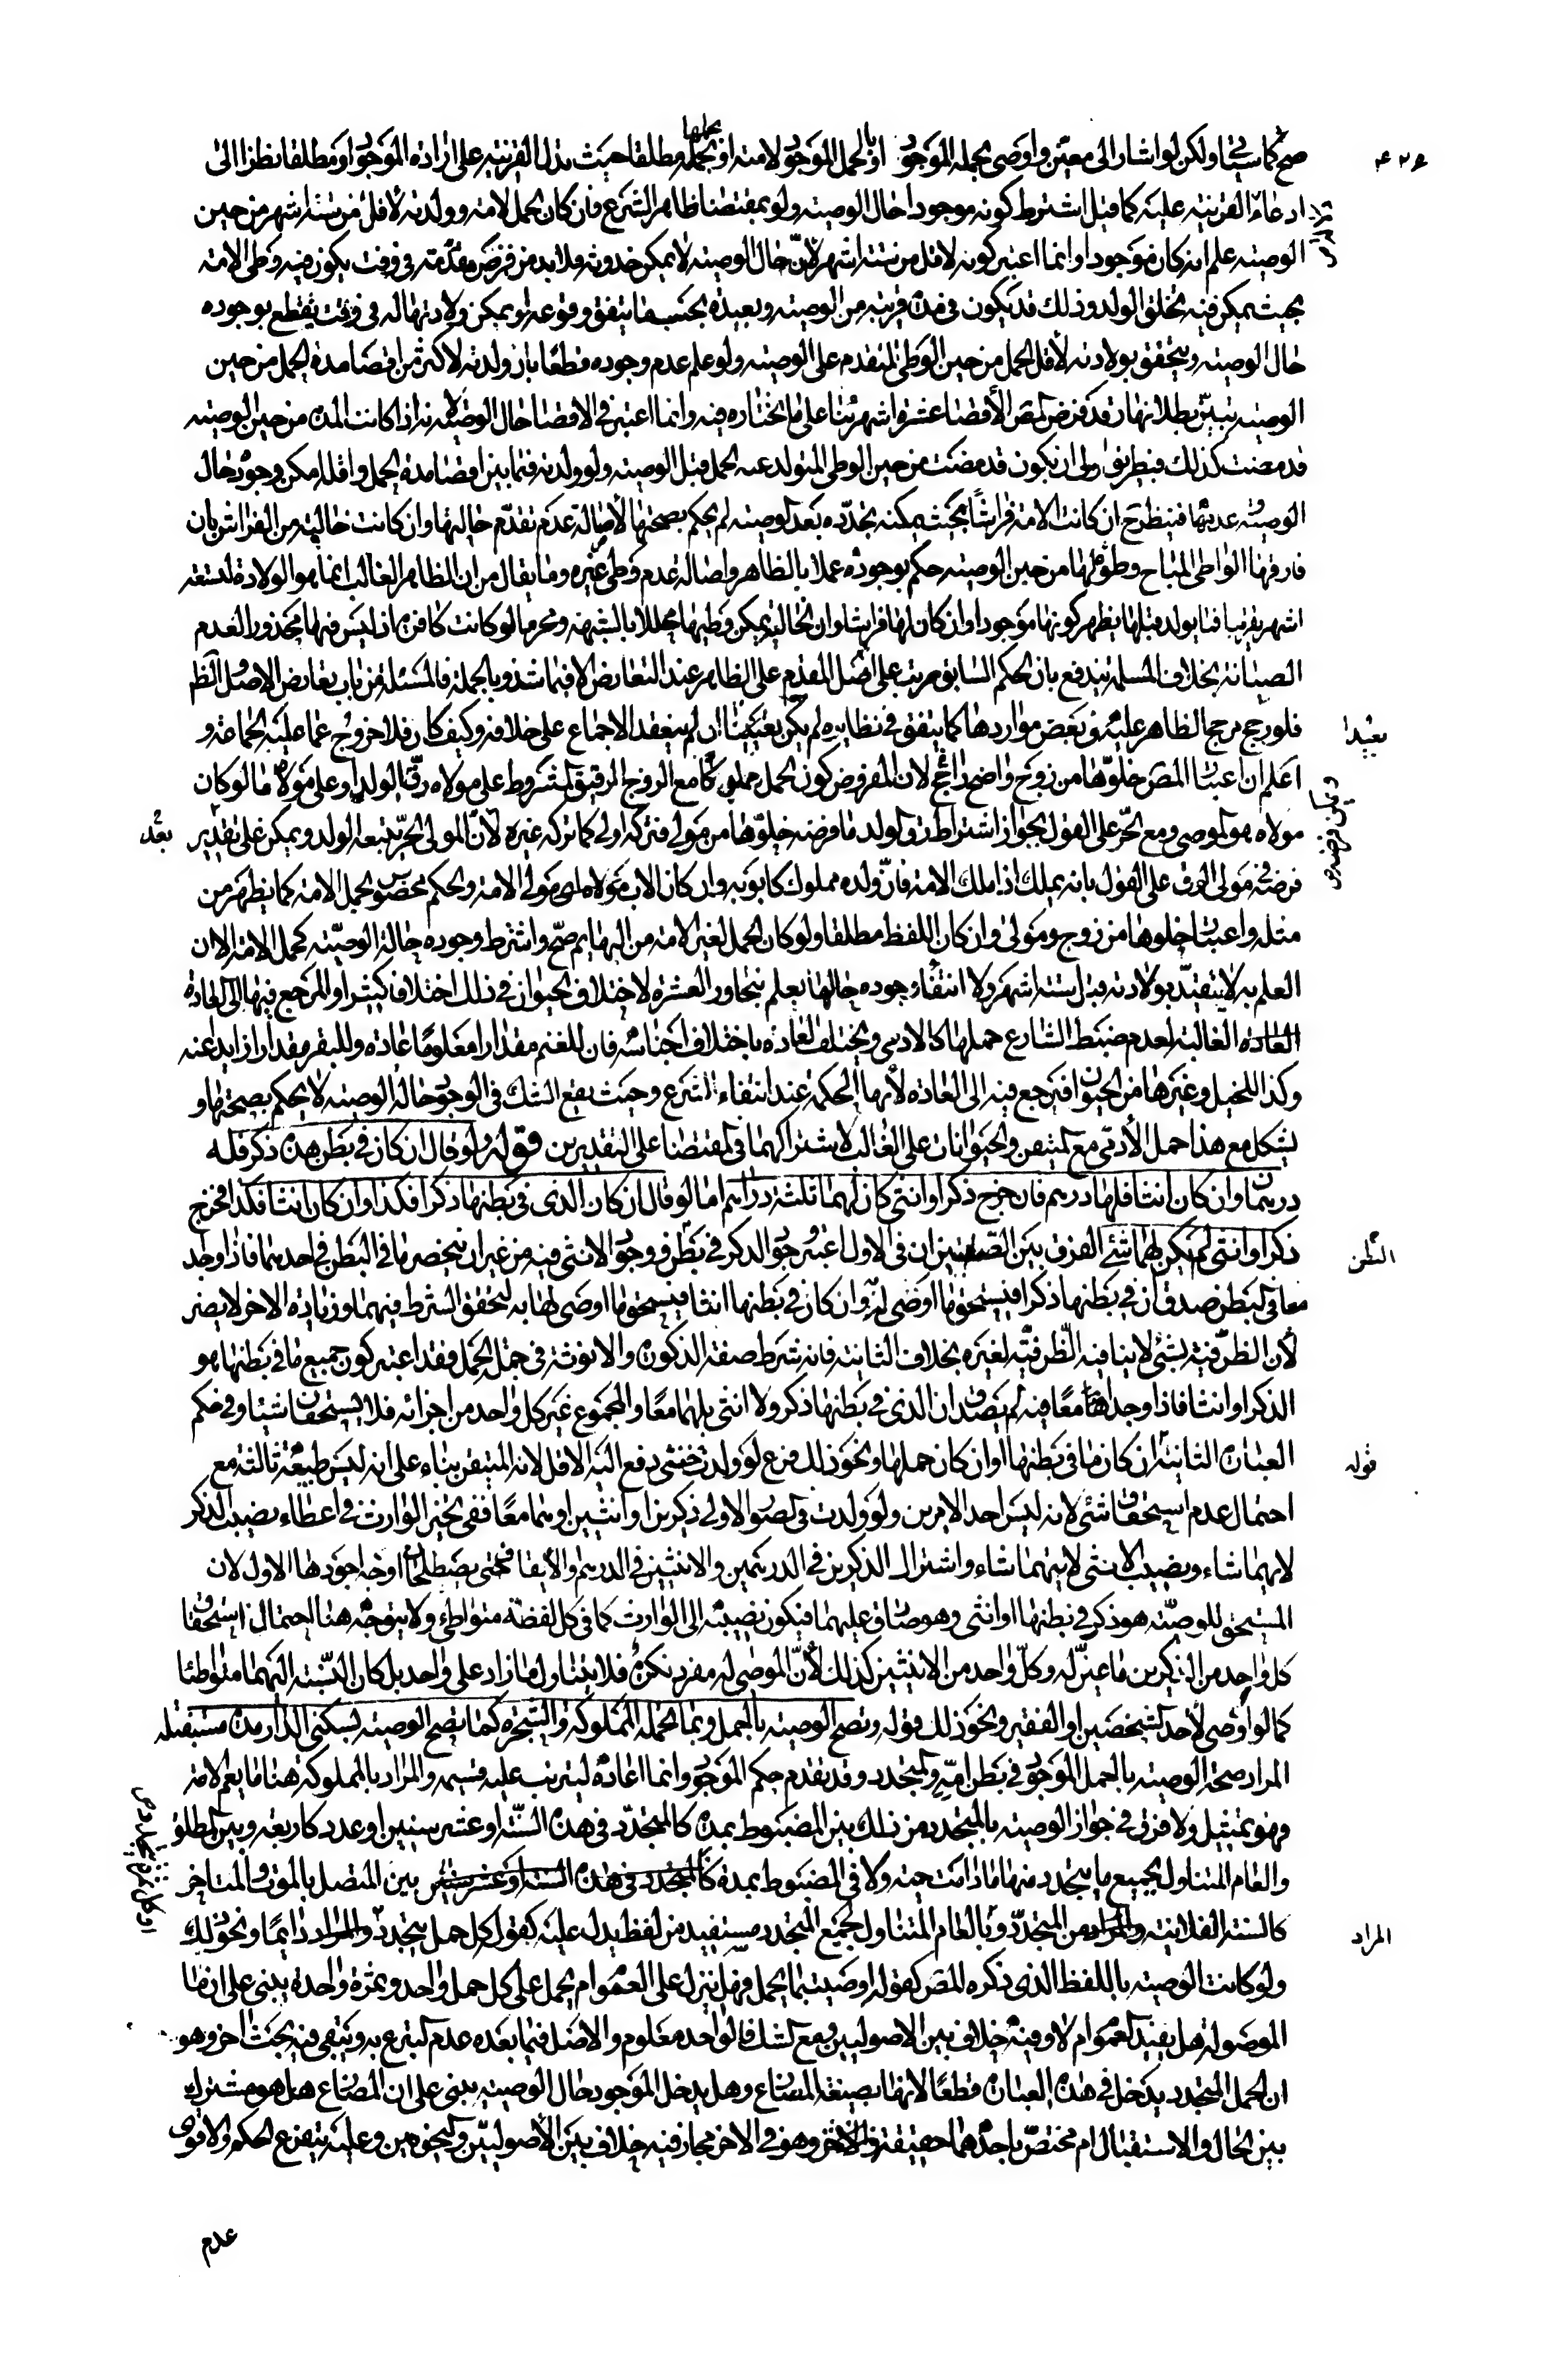 صح كما سيأتي ولكن لو اشار الى معين واوصى بحمله الموجود او بالحمل الموجود لامته او بحملها مطلقا حيث تدل القرينة على ارادة الموجود او مطلقا نظرا الى
ادعاء القرينة عليه كما قيل اشترط كونه موجودا حال الوصية ولو بمقتضا ظاهر الشرع فان كان الحمل لامة وولدته لأقل من ستة اشهر من حين
الوصية علم انه كان موجودا وانما اعتبر كونه لاقل من ستة اشهر لأن حال الوصية لا يمكن حدوثه فلا بد من فرض مقدمة في وقت يكون فيه وطى الامة
بحيث يمكن فيه تخلق الولد وذلك قد يكون في مدة قريبة من الوصية وبعيدة بحسب ما يتفق وقوعه او يمكن ولادتها له في وقت يقطع بوجوده
حال الوصية ويتحقق بولادته لأقل الحمل من حين الوطى المتقدم على الوصية ولو علم عدم وجوده قطعا بان ولدته لاكثر من اقصا مدة الحمل من حين
الوصية تبين بطلانها وقد فرض المص الأقصا عشرة اشهر بنا على ما يختاره فيه وانما اعتبر في الاقصا حال الوصية لانه اذا كانت المدة من حين الوصية
قد مضت كذلك فبطريق اولى ان يكون قد مضت من حين الوطى المتولد عنه الحمل قبل الوصية ولو ولدته فيما بين اقصا مدة الحمل واقله امكن وجوده حال
الوصية وعدمها فينظر ح ان كانت الامة فراشا بحيث يمكنه تجدده بعد الوصية لم يحكم بصحتها لأصالة عدم تقدم حالتها وان كانت خالية من الفراش بان
فارقها الواطى المباح وطؤه لها من حين الوصية حكم بوجوده عملا بالظاهر واصالة عدم وطى غيره وما يقال من ان الظاهر الغالب انما هو الولادة لتسعة
اشهر تقريبا فما يولد قبلها يظهر كونها موجودا وان كان لها فراشا وان الخالية يمكن وطيها محللا بالشبهة ومحرما لو كانت كافرة اذ ليس فيها محذور لعدم
الصيانة بخلاف المسلمة يندفع بان الحكم السابق مرتب على الأصل المقدم على الظاهر عند التعارض الا فيما شذ وبالجملة فالمسئلة من باب تعارض الاصل والظ
فلو رجح مرجح الظاهر عليه في بعض مواردها كما يتفق في نظايره لم يكن بعيدا ان لم ينعقد الاجماع على خلافه وكيف كان فلا خروج عما عليه الجماعة و
اعلم ان اعتبار المص خلوها من زوج واضح لان المفروض كون الحمل مملوكا مع الزوج الرقيق المشروط على مولاه رقية الولد او على مولاه ما لو كان
مولاه هو الموصى ومع الحر على القول بجواز اشتراط رق الولد فما فرضه خلوها من مولى فتركه اولى كما تركه غيره لأن المولى الحر يتبعه الولد ويمكن على تقدير بعد
فرضه في مولى الرق على القول بانه يملك اذا ملك الامة فان ولده مملوك كابويه وان كان الاب مولاه اى مولى الامة والحكم مخصوص بحمل الامة كما يظهر من
مثله واعتبار خلوها من زوج ومولى وان كان اللفظ مطلقا ولو كان الحمل لغير الامة من البهايم صح واشترط وجوده حالة الوصية كحمل الامة الا ان
العلم به لا يتقيد بولادته قبل ستة اشهر ولا انتفاء وجوده حالها يعلم بتجاوز العشرة لاختلاف الحيوان في ذلك اختلافا كثيرا والمرجع فيها الى العادة
العادة الغالبة لعدم ضبط الشارع حملها كالادمى ويختلف العادة باختلاف اجناسه فان للغنم مقدارا معلوما عادة وللبقر مقدارا زايدا عنه
وكذا للخيل وغيرها من الحيوان فيرجع فيه الى العادة لأنها الحكمة عند انتفاء الشرع وحيث يقع الشك في الوجود حالة الوصية لا يحكم بصحتها و
يشكل مع هذا حمل الأدمى مع المتيقن والحيوانات على الغالب لاشتراكهما في المقتضا على التقديرين قوله ولو قال ان كان في بطن هذه ذكر فله
درهمان وان كان انثا فلها درهم فان خرج ذكر او انثى كان لهما ثلثة دراهم اما لو قال ان كان الذى في بطنها ذكرا فكذا وان كان انثا فكذا فخرج
ذكر او انثى لم يكن لهما شئ الفرق بين الصيغتين ان في الاول اعتبر وجود الذكر في بطن ووجود الانثى فيه من غير ان ينحصر ما في البطن في احدهما فاذا وجد
معا في البطن صدق ان في بطنها ذكرا فيستحق ما اوصى له وان كان في بطنها انثا فيستحق ما اوصى لها به لتحقق الشرط فيهما وزيادة الاخر لا يضر
لأن الظرفية بشئ لا ينافيه الظرفية لغيره بخلاف الثانية فانه شرط صفة الذكورة والانوثة في جملة الحمل فقد اعتبر كون جميع ما في بطنها هو
الذكر او انثا فاذا وجدا معا فيه لم يصدق ان الذى في بطنها ذكر ولا انثى بل هما معا والمجموع غير كل واحد من اجزائه فلا يستحقان شيئا وفي حكم
العبارة الثانية ان كان ما في بطنها او ان كان حملها ونحو ذلك فرع لو ولدت خنثى دفع اليه الاقل لانه المتيقن بناء على انه ليس طبيعة ثالثة مع
احتمال عدم استحقاق شئ لانه ليس احد الامرين ولو ولدت في الصورة الاولى ذكرين او انثيين او هما معا ففى تخير الوارث في اعطاء نصيب الذكر
لايهما شاء ونصيب الانثى لايتهما شاء واشتراك الذكرين في الدرهمين والانثيين في الدرهم والايقاف حتى يصطلحا اوجه اجودها الاول لان
المستحق للوصية هو ذكر في بطنها او انثى وهو صادق عليهما فيكون نصيبه الى الوارث كما في كل لفظة متواطئ ولا يتوجه هنا احتمال استحقاق
كل واحد من الذكرين ما عين له وكل واحد من الانثيين كذلك لأن الموصى له مفرد نكرة فلا يتناول ما زاد على واحد بل كان النسبة اليهما متواطئا
كما لو اوصى لأحد الشخصين او الفقير ونحو ذلك قوله وتصح الوصية بالحمل وبما تحمله المملوكة والشجرة كما تصح الوصية بسكنى الدار مدة مستقبله
المراد صحة الوصية بالحمل الموجود في بطن امه والمتجدد وقد تقدم حكم الموجود وانما اعاده ليترتب عليه قسيمه والمراد بالمملوكة هنا ما يعم الامة
فهو تمثيل ولا فرق في جواز الوصية بالمتجدد من ذلك بين المضبوط بمدة كالمتجدد في هذه السنة او عشر سنين او عدد كاربعة وبين المطلق
والعام المتناول لجميع ما يتجدد منها ما دامت حية ولا في المضبوط بمدة كالمتجدد في هذه السنة او عشر سنين بين المتصل بالموت والمتاخر
كالسنة الفلانية والمراد من المتجدد وبالعام المتناول لجميع المتجدد مستفيد من لفظ يدل عليه كقوله كل حمل يتجدد والمراد دايما ونحو ذلك
ولو كانت الوصية باللفظ الذى ذكره المص كقوله اوصيت بما تحمل فهل ينزل على العموم ام يحمل على كل حمل واحد وثمرة واحدة يبنى على ان ما
الموصولة هل يفيد العموم ام لا وفيه خلاف بين الاصوليين ومع الشك فالواحد معلوم والاصل فيما بعده عدم التبرع به ويبقى فيه بحث اخر وهو
ان الحمل المتجدد يدخل في هذه العبارة قطعا لانها بصيغة المضارع وهل يدخل الموجود حال الوصية يبنى على ان المضارع هل هو مشترك
بين الحال والاستقبال ام مختص باحدهما حقيقة وهو في الاخر مجاز فيه خلاف بين الأصوليين والنحويين وعليه يتفرع الحكم والاقوى
عدم
بعيدا
البطن
قوله
المراد